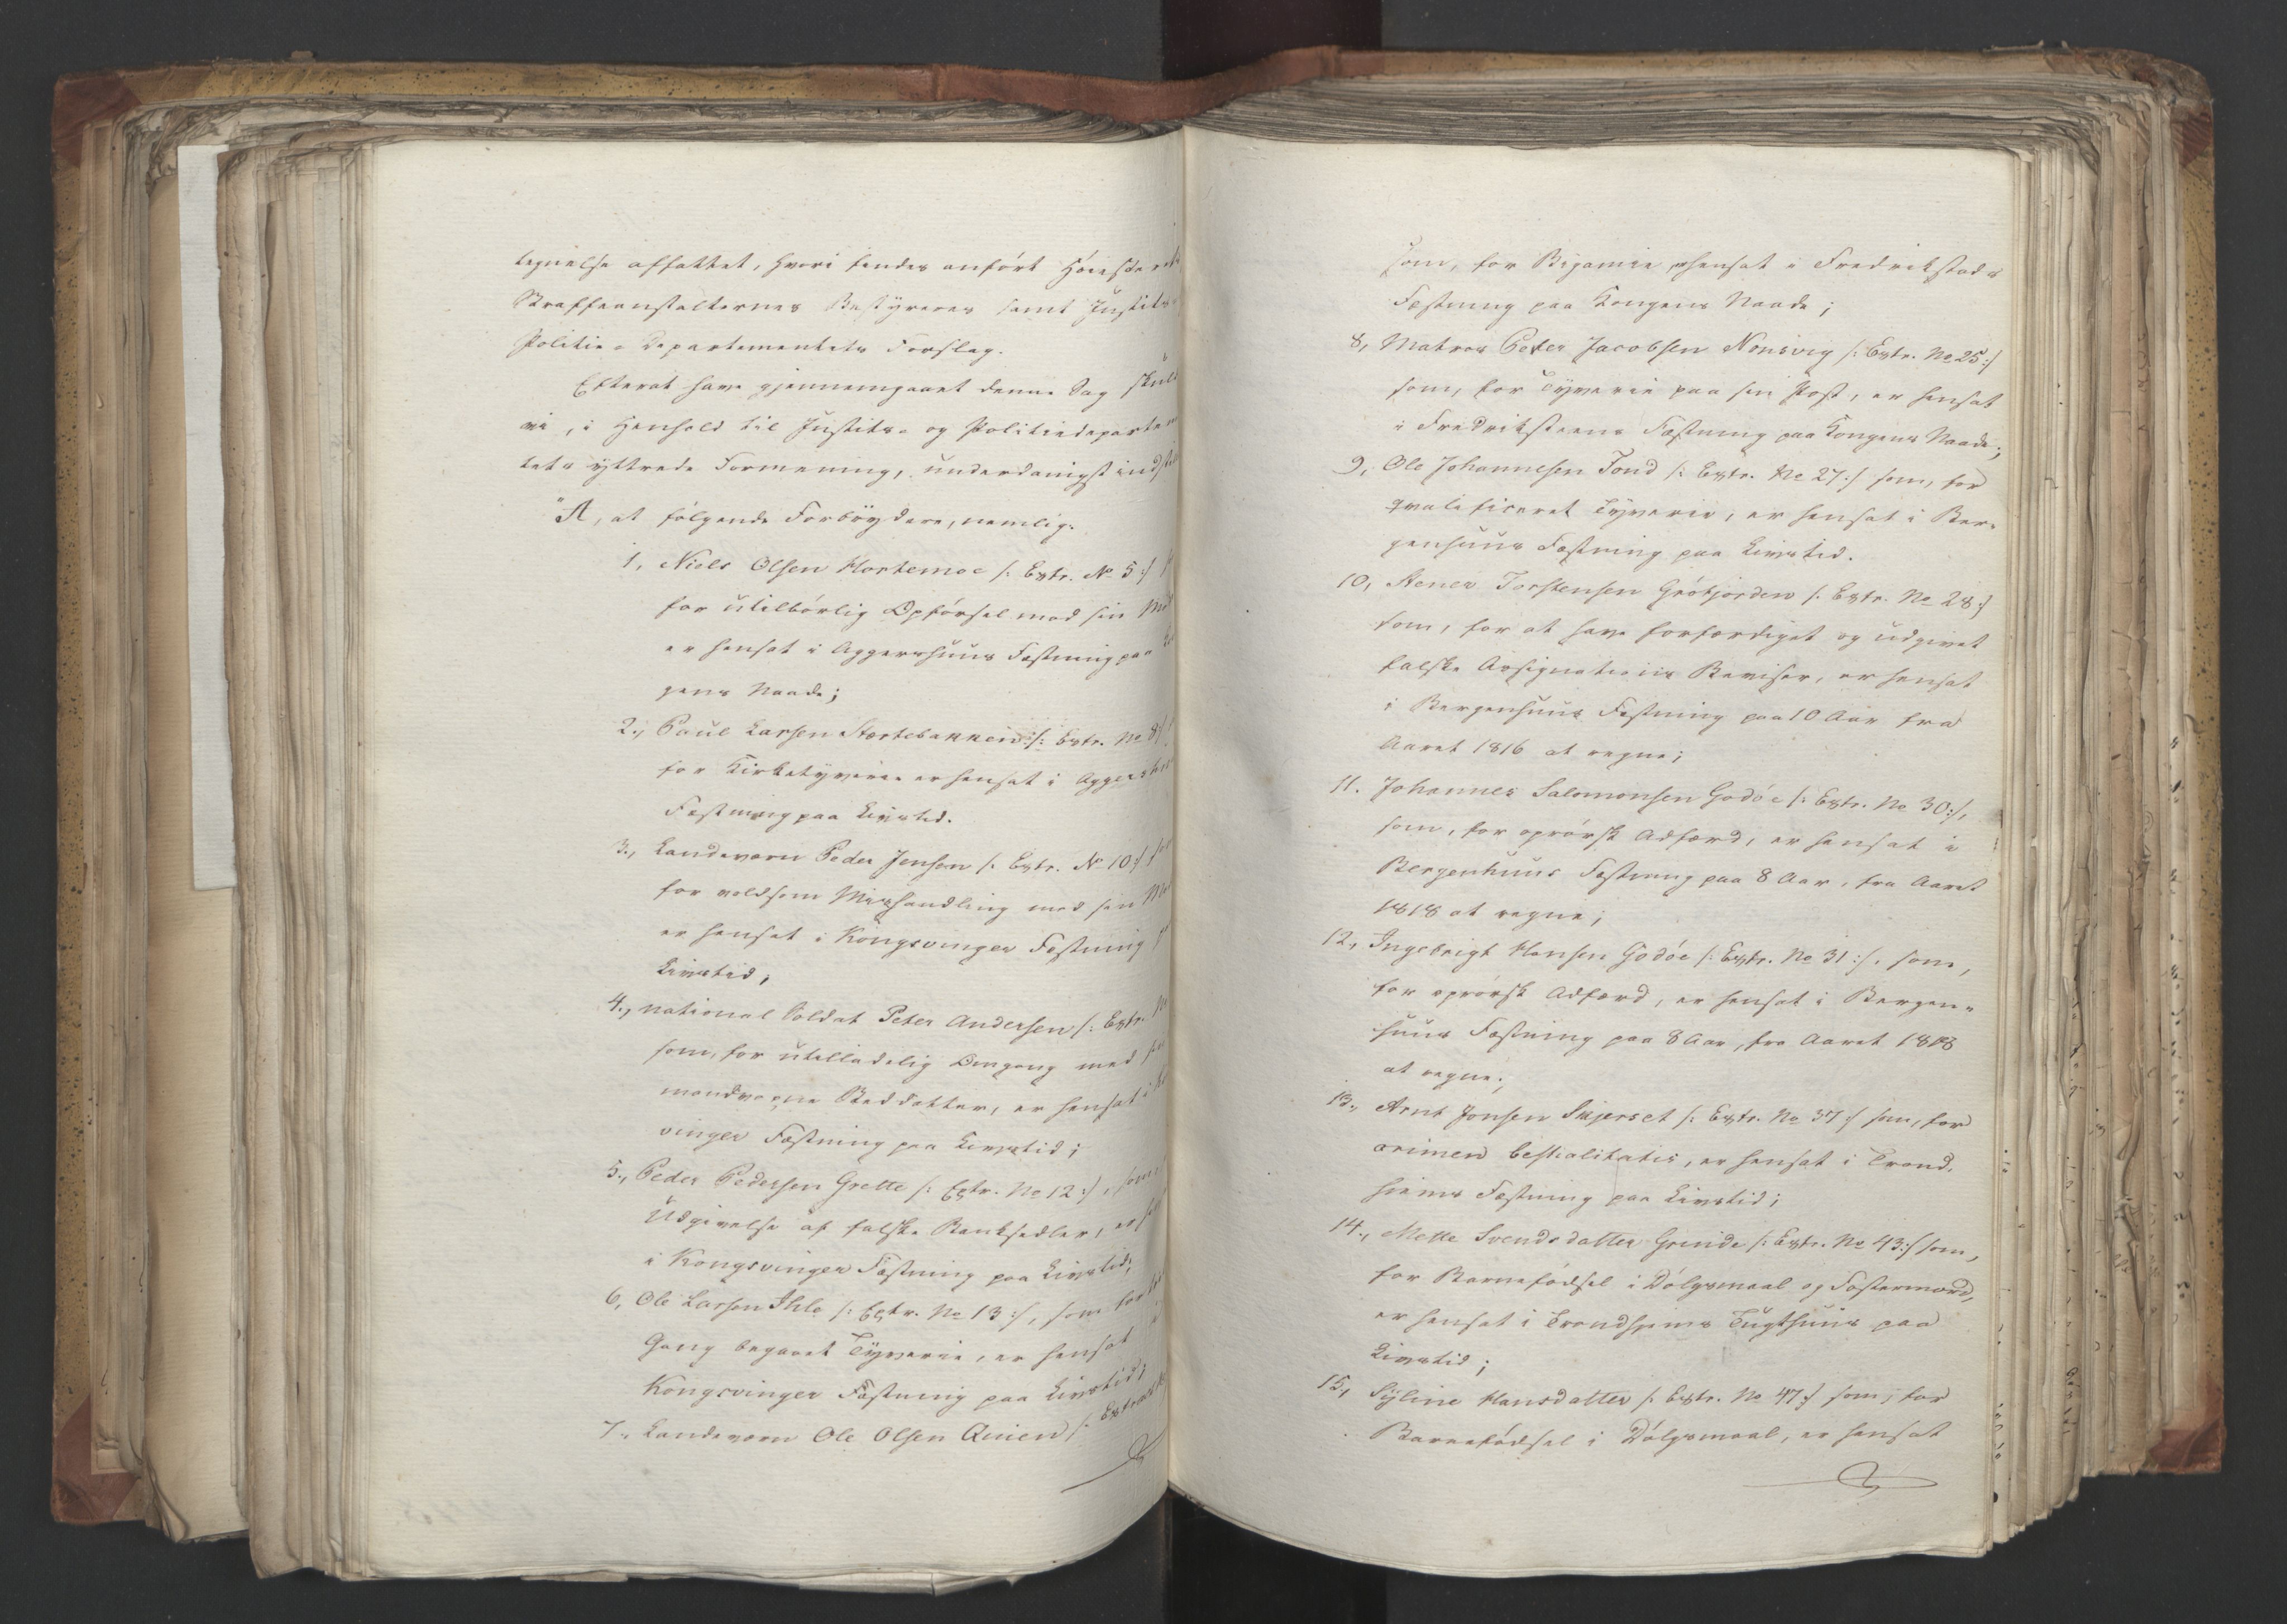 tegnelse affattet, hvori findes anført Høiesterets
Straffeanstalternes Bestyreres samt Justits-
Politie-Departementets Forslag.
Efterat have gjennemgaaet denne Sag skulde
vi, i Henhold til Justits- og Politiedepartemen
tets yttrede Formening, underdanigst indstille
"A, at følgende Forbrydere, nemlig:
1, Niels Olsen Hortemoe /: Extr. No 5 :/
for utilbørlig Opførsel mod sin
er hensat i Aggershuus Fæstning paa
gens Naade;
2., Paul Larsen Stortebakken /: Extr. No 8 :/
for Kirketyverie er hensat i Aggershuus
Fæstning paa Livstid.
3., Landeværn Peder Jensen /: Extr. No 10 :/ som
for voldsom Mishandling mod sin
er hensat i Kongsvinger Fæstning
Livstid;
4., national Soldat Peter Andersen /: Extr. No
som, for utilladelig Omgang med sin
mandvoxne Steddatter, er hensat i
vinger Fæstning paa Livstid;
5., Peder Pedersen Grette /: Extr. No 12 :/, som
Udgivelse af falske Banksedler, er
i Kongsvinger Fæstning paa Livstid;
6, Ole Larsen Ihle /: Extr. No 13 :/, som for
Gang begaaet Tyverie, er hensat
Kongsvinger Fæstning paa Livstid;
7., Landeværn Ole Olsen /: Extract
som, for Bigamie er hensat i Fredrikstads
Fæstning paa Kongens Naade;
8, Matros Peter Jacobsen Nonsvig /: Extr. No 25 :/
som, for Tyverie paa sin Post, er hensat
i Fredriksteens Fæstning paa Kongens Naade;
9, Ole Johannesen Tond /: Extr. No 27 :/ som, for
qvalificeret Tyverie, er hensat i Ber-
genhuus Fæstning paa Livstid.
10, Stener Torstensen Grötjorden /: Extr. No 28 :/
som, for at have forfærdiget og udgivet
falske Assignations Beviser, er hensat
i Bergenhuus Fæstning paa 10 Aar fra
Aaret 1816 at regne;
11. Johannes Salomonsen Godøe /: Extr. No 30 :/,
som, for oprørsk Adfærd, er hensat i
Bergenhuus Fæstning paa 8 Aar, fra Aaret
1818 at regne;
12., Ingebrigt Hansen Godøe /: Extr. No 31 :/, som,
for oprørsk Adfærd, er hensat i Bergen-
huus Fæstning paa 8 Aar, fra Aaret 1818
at regne;
13., Arnt Jonsen Skjerset /: Extr. No 37 :/ som, for
crimen bestialitatis, er hensat i Trond-
hjems Fæstning paa Livstid;
14., Mette Svendsdatter Grinde /: Extr. No 43 :/ som,
for Barnefødsel i Dølgsmaal og Fostermord,
er hensat i Trondhjems Tugthuus paa
Livstid;
15, Syline Hansdatter /: Extr. No 47 :/ som, for
Barnefødsel i Dølgsmaal, er hensat